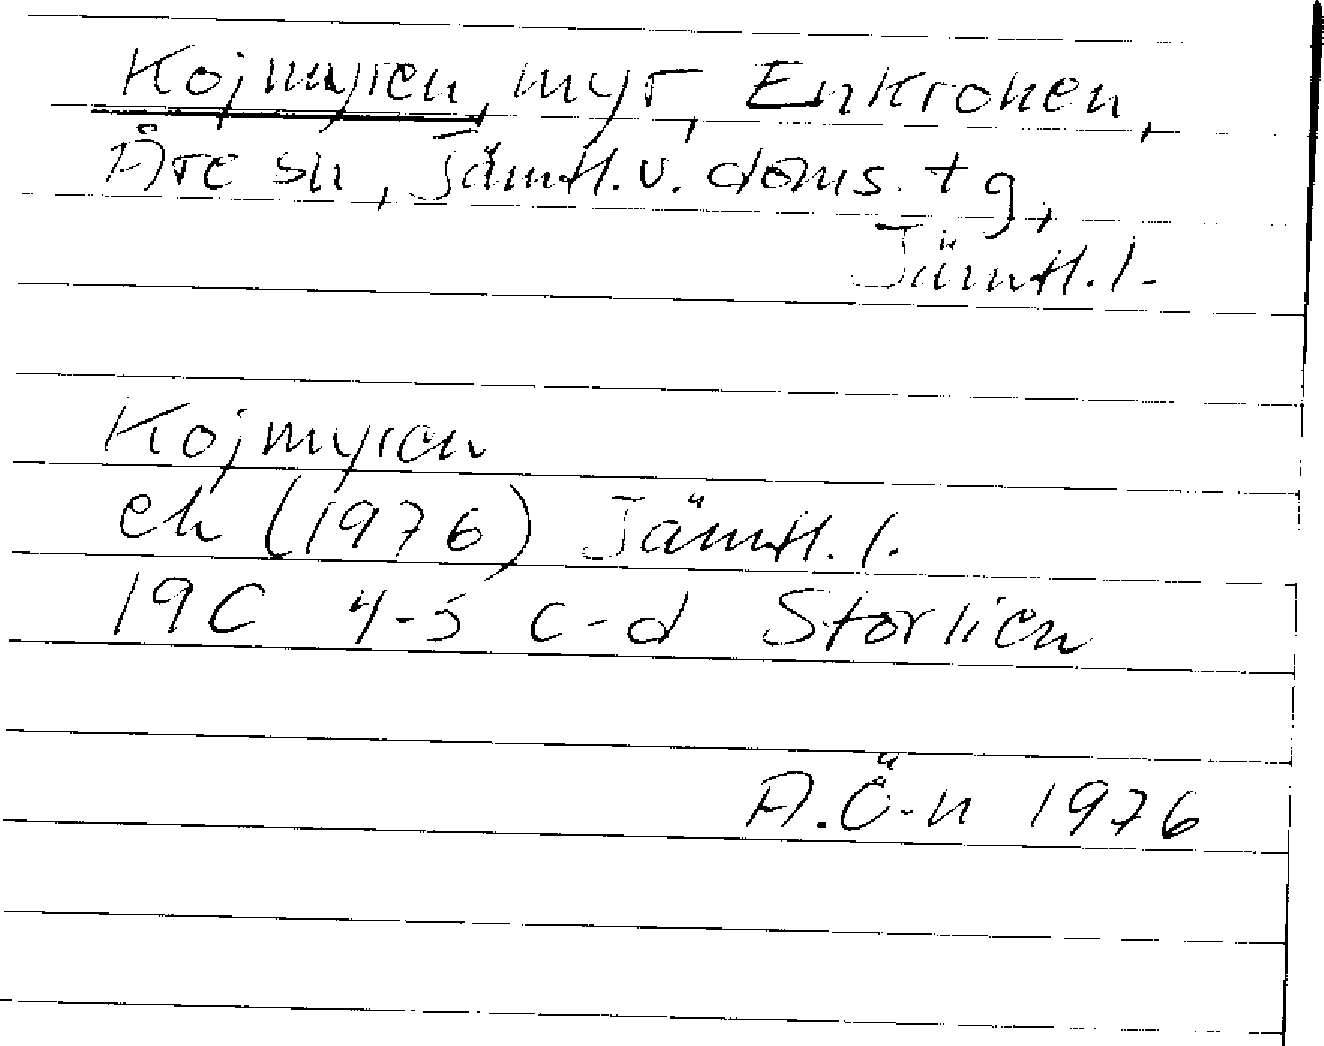 Kojmyren, myr, Enkroken,
Åre sn, Jämtl. v. doms. tg,
Jämtl. l.
Kojmyren
ek (1976) Jämtl. l.
19C 4-5 c-d Storlien
A.Ö-n 1976